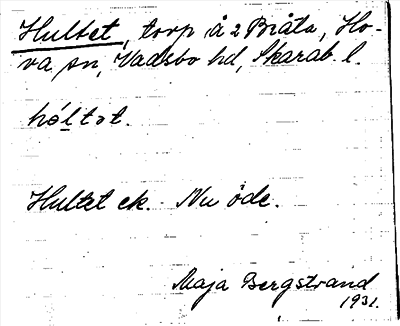 Hultet, torp å 2 Bråta, Ho-
va sn, Vadsbo hd, Skarab. l.
hóltət.
Hultet ek. Nu öde.
Maja Bergstrand
1931.